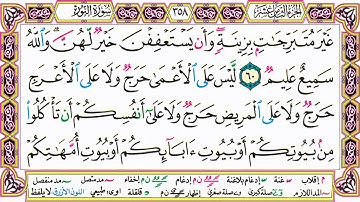 الجزء الثامن عشر ٣٥٨ سورة النور
غَيْرَ مُتَبَرِّجَٰتٍۭ بِزِينَةٍ وَأَن يَسْتَعْفِفْنَ خَيْرٌ لَّهُنَّ وَٱللَّهُ
سَمِيعٌ عَلِيمٌ ٦٠ لَّيْسَ عَلَى ٱلْأَعْمَىٰ حَرَجٌ وَلَا عَلَى ٱلْأَعْرَجِ
حَرَجٌ وَلَا عَلَى ٱلْمَرِيضِ حَرَجٌ وَلَا عَلَىٰٓ أَنفُسِكُمْ أَن تَأْكُلُوا۟
مِنۢ بُيُوتِكُمْ أَوْ بُيُوتِ ءَابَآئِكُمْ أَوْ بُيُوتِ أُمَّهَٰتِكُمْ